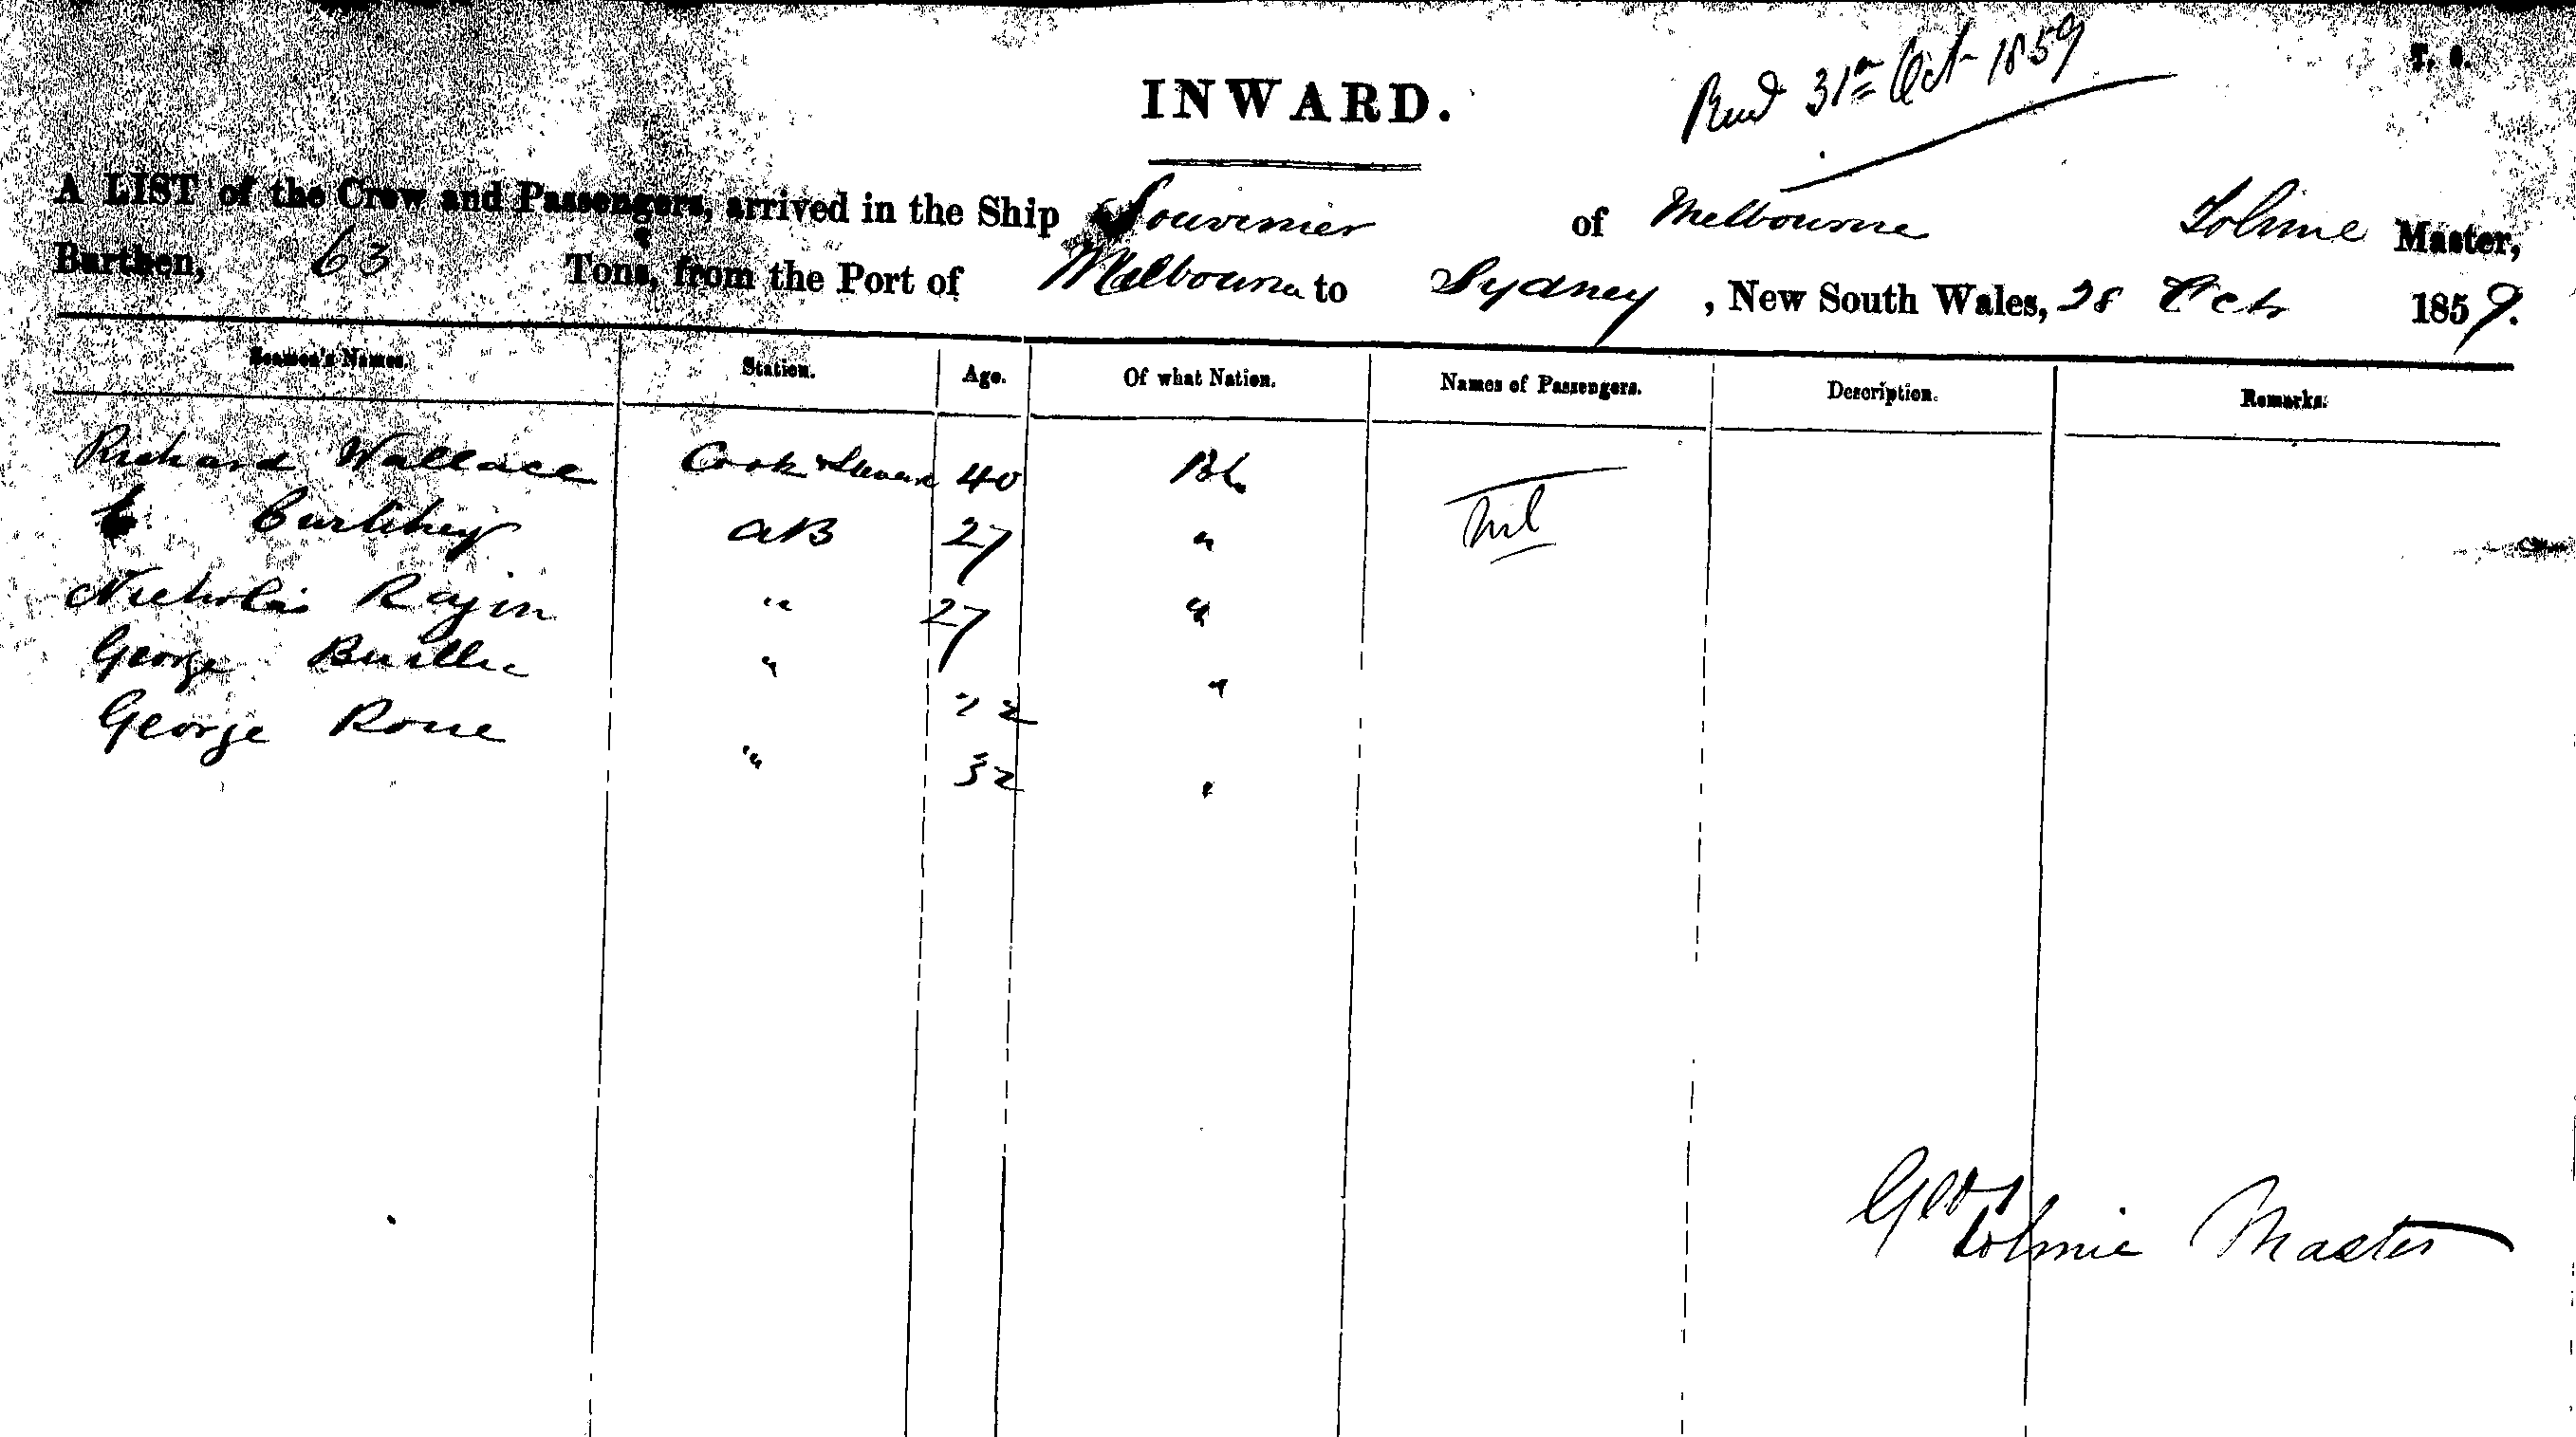 T. S.
INWARD.
Recd 31st Oct 1859
A LIST of the Crew and Passengers, arrived in the Ship Souvenier of Melbourne Tolmie Master,
Burthen, 63 Tons, from the Port of Melbourne to Sydney , New South Wales, 28 Oct 1859.
Seamen's Names. Station. Age. Of what Nation. Names of Passengers. Description. Remarks.
Richard Wallace Cook & 40 nil
AB 27 "
Nicholas " 27 "
George " 22 "
George Rowe " 32 "
Geo Tolmie Master